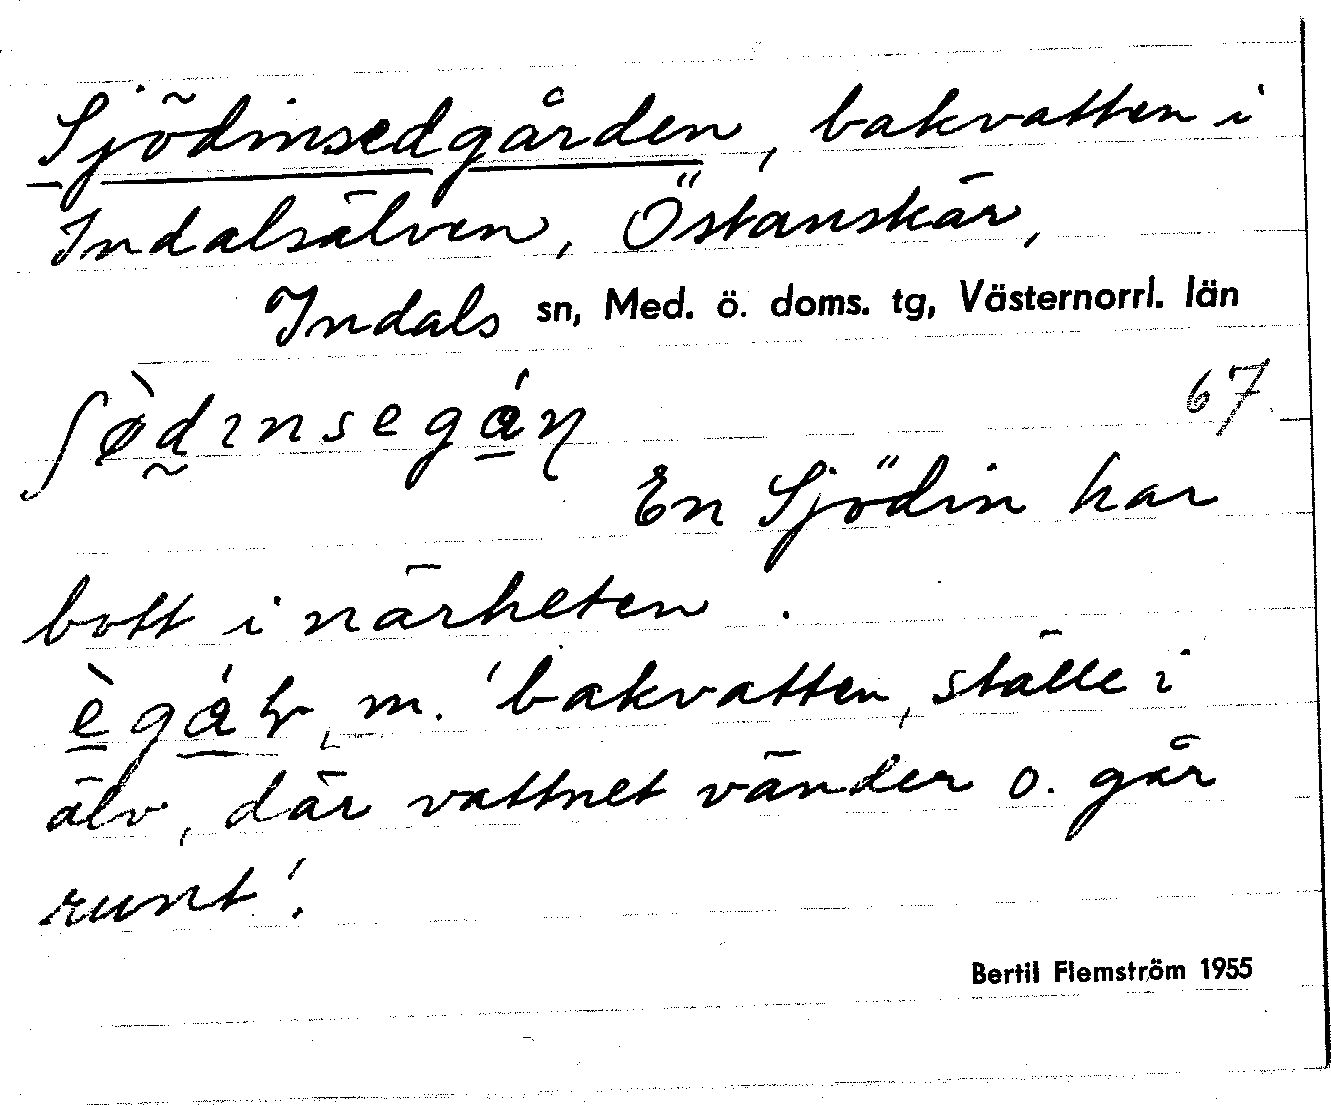 Sjödinsedgården, bakvatten i
Indalsälven, Östanskär,
Indals sn, Med. ö. doms. tg, Västernorrl. län
67
En Sjödin har
bott i närheten.
m. 'bakvatten, ställe i
älv, där vattnet vänder o. går
runt'.
Bertil Flemström 1955